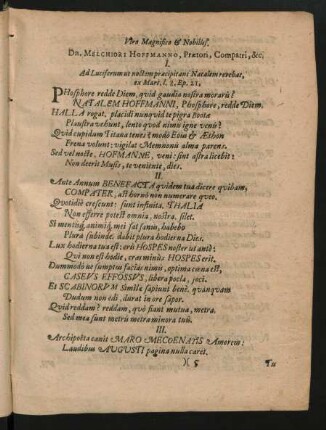 Viro Magnifico & Nobiliss.
DR. MELCHIORI HOFFMANNO, Prætori, Compatri, &c.
I.
Ad Luciferum ut noctem præcipitans Natalem revehat,
ex Mart. l. 8. Ep. 21.
PHosphore redde Diem, quid gaudia nostra moraris?
NATALEM HOFFMANNI, Phosphore, redde Diem.
HALLA rogat. placidi nunquid te pigra Bootæ
Plaustra vehunt, lento quod nimis igne venis?
Quid cupidum Titana tenes? modò Eous & Æthon
Frena volunt: vigilat Memnonis alma parens.
Sed vel nocte, HOFMANNE, veni: sint astra licebit:
Non deerit Musis, te veniente, dies.
II.
Ante Annum BENEFACTA quidem tua dicere quibam,
COMPATER, ast horno non numerare queo.
Quotidiè crescunt: sunt infinita. THALIA
Non efferre potest omnia, nostra, silet.
Si mentis, animíq́; mei sat sanus, habebo
Plura subinde. dabit plura hodierna Dies.
Lux hodierna tua est: eris HOSPES noster ut antè:
Qui non est hodie, cras minùs HOSPES erit.
Dummodò ne sumptus facias nimis, optima cœna est,
CASEUS EFFOSSUS, libera pocla, joci.
Et SCABINORUM Similæ sapiunt benè. quanquam
Dudum non edi, durat in ore sapor.
Quid reddam? reddam, quò fiant mutua, metra.
Sed mea sunt metris metra minora tuis.
III.
Archipoëta canit MARO MECOENATIS Amorem:
Laudibus AUGUSTI pagina nulla caret.
)( 5 Tu